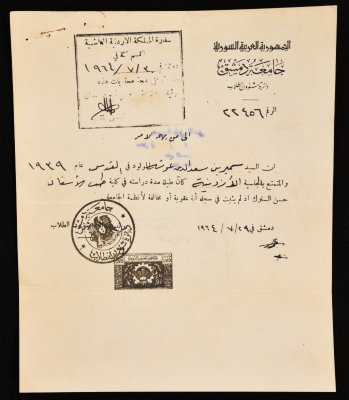 الجمهورية العربية السورية
جامعة دمشق
دائرة شؤون الطلاب
الرقم ٢٢٤٥٦
سفارة المملكة الاردنية الهاشمية
القسم
١٩٦٤/٧/٣٠
الى من يهمه الامر
ان السيد سمير بن سعد الدين المولود في القدس عام ١٩٣٩
والمتمتع بالجنسية الأردنية كان طيلة مدة دراسته في كلية طب الأسنان
حسن السلوك اذ لم يثبت في سجله أية عقوبة أو مخالفة لأنظمة الجامعة.
دمشق في ٢٩/٧/١٩٦٤
الطلاب
جامعة دمشق